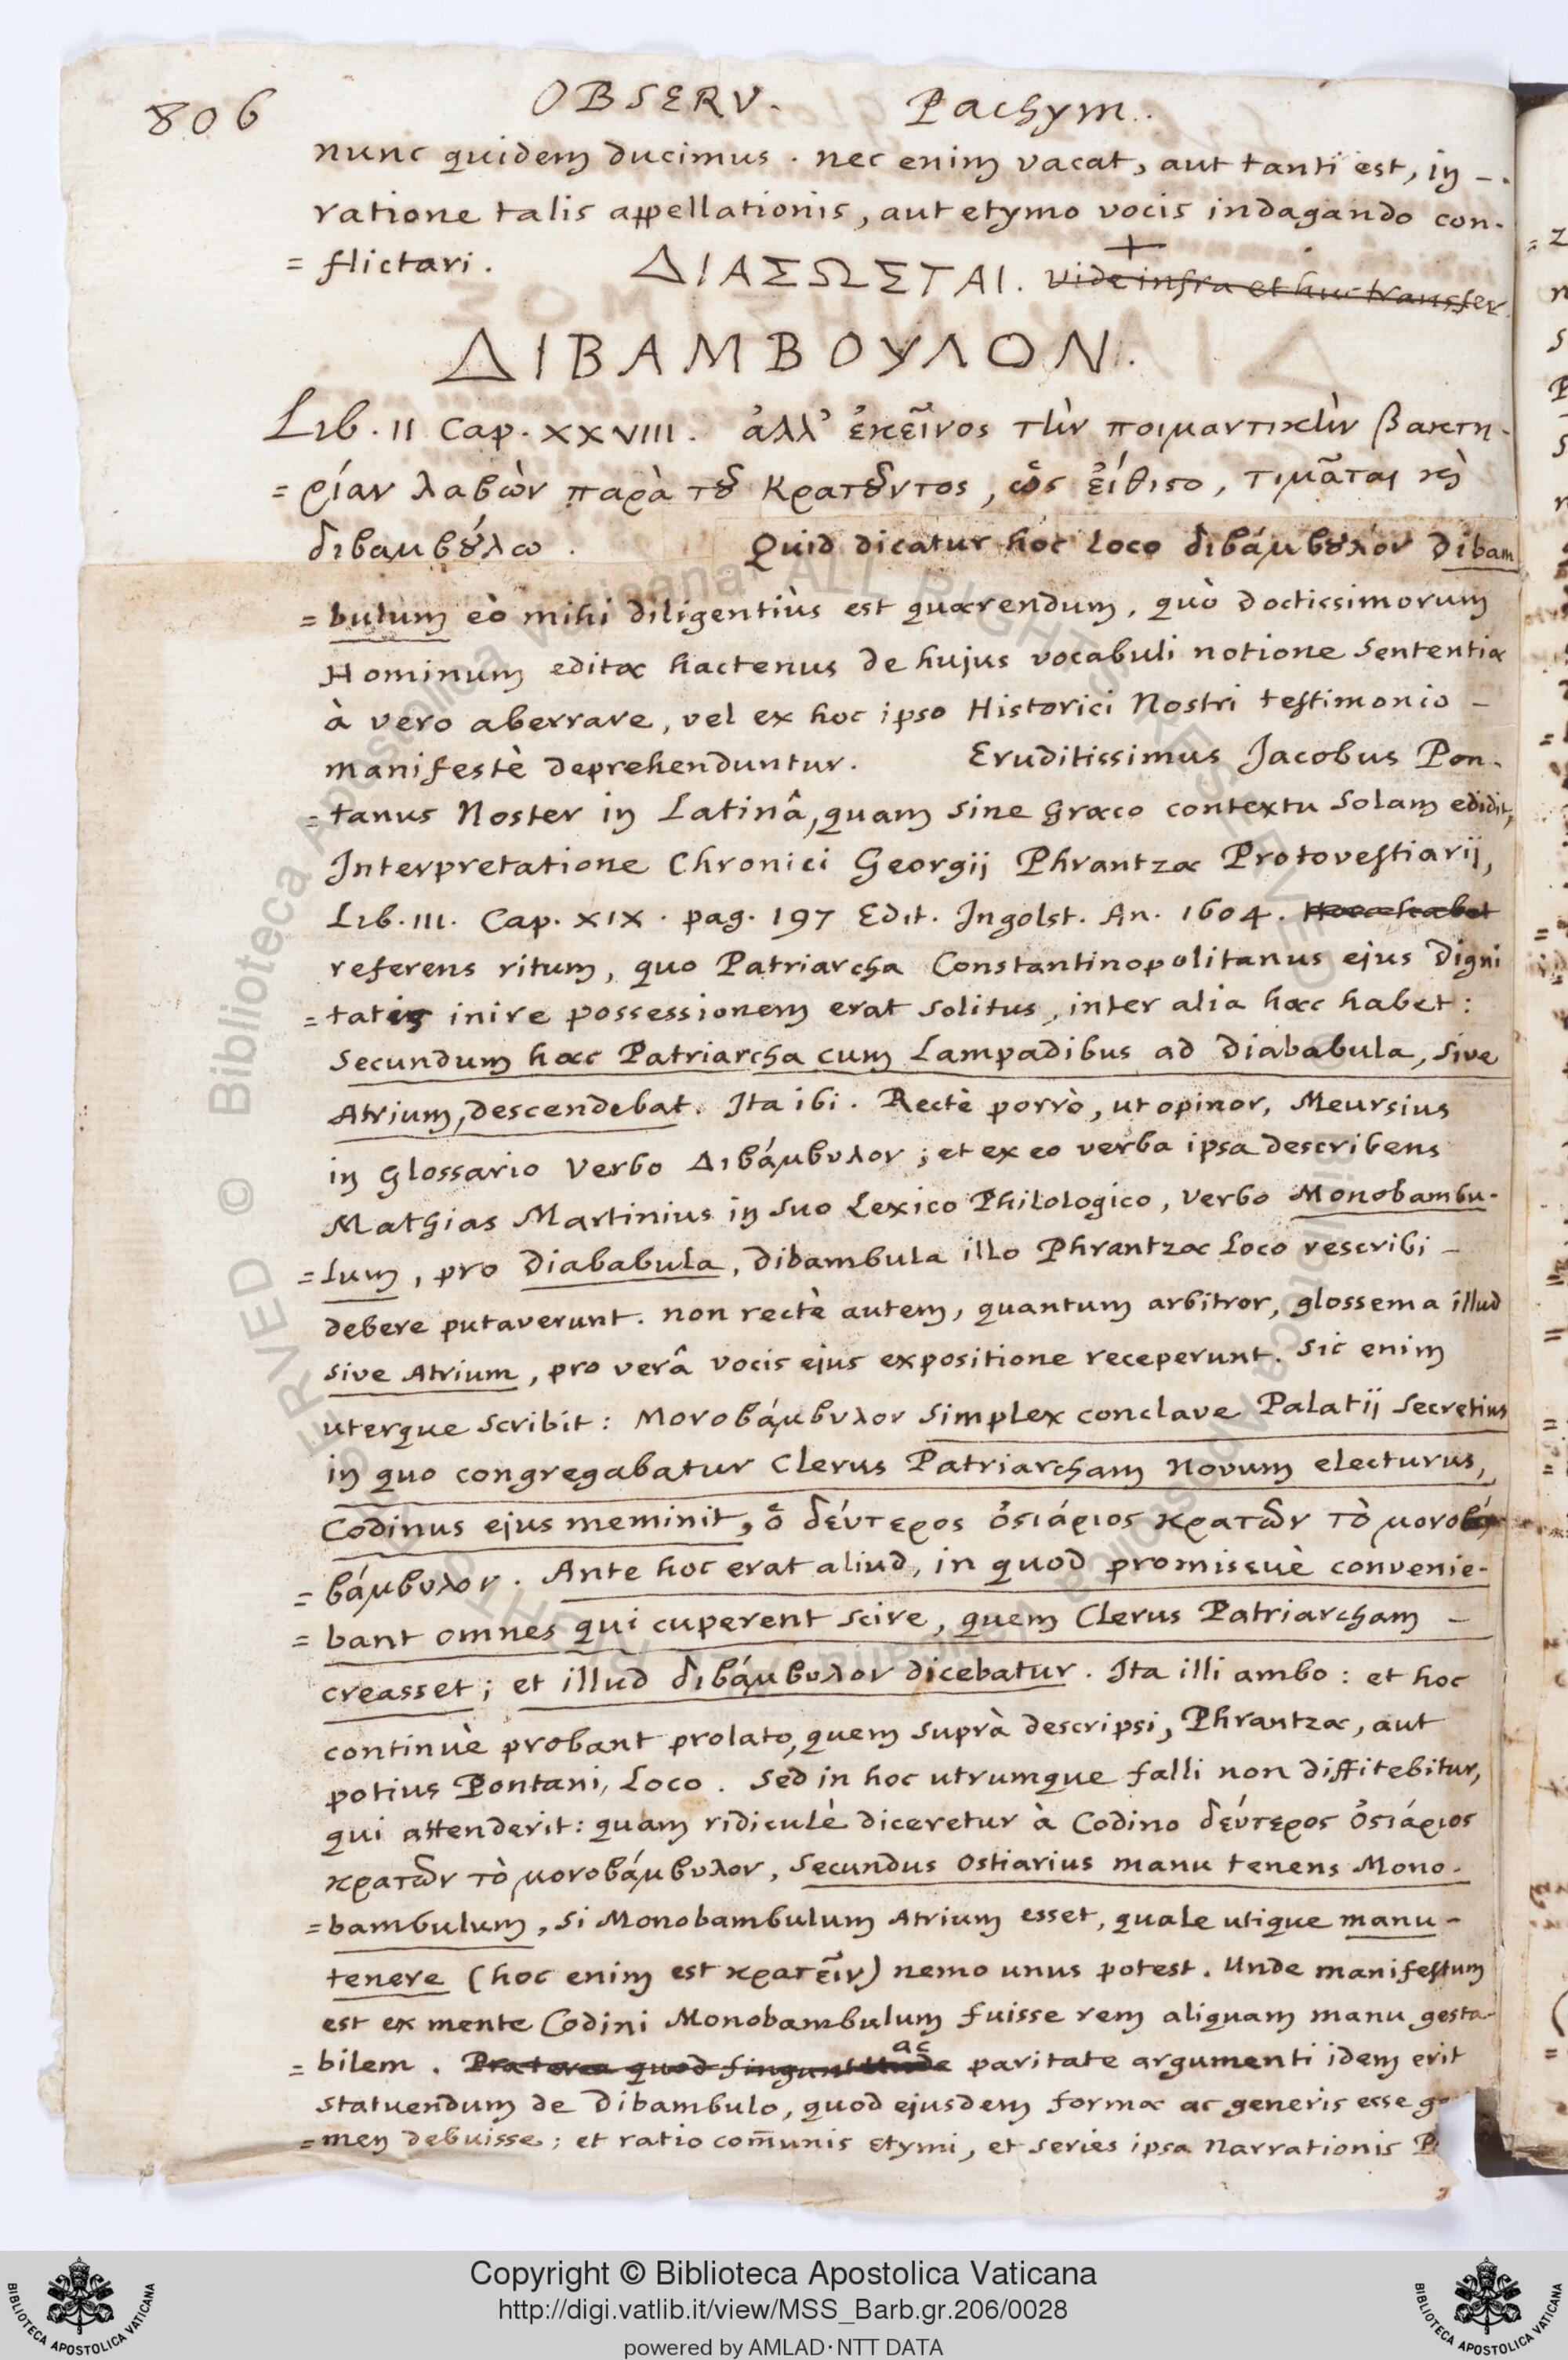 806 OBSERV. Pachym.
nunc quidem ducimus. nec enim vacat, aut tanti est, in -
ratione talis appellationis, aut etymo vocis indagando con-
= flictari. ΔΙΑΣΩΣΤΑΙ. vide infra et huc transfer
ΔΙΒΑΜΒΟΥΛΟΝ.
Lib. II Cap. XXVIII. ἀλλ' ἐκεῖνος τὴν ποιμαντικὴν βακτη-
= ρίαν λαβὼν παρὰ τȣ͂ Κρατȣ͂ντος, ὡς εἴθιστο, τιμᾶται καὶ
διβαμβȣ́λῳ. Quid dicatur hoc loco διβάμβȣλον Dibam
= bulum eò mihi diligentiùs est quærendum, quò doctissimorum
Hominum editæ hactenus de hujus vocabuli notione sententiæ
à vero aberrare, vel ex hoc ipso Historici Nostri testimonio -
manifestè deprehenduntur. Eruditissimus Jacobus Pon-
= tanus Noster in Latinâ, quam sine Græco contextu solam edidit,
Interpretatione Chronici Georgij Phrantzæ Protovestiarij,
Lib. III. Cap. XIX. pag. 197 Edit. Ingolst. An. 1604. Hoc habet
referens ritum, quo Patriarcha Constantinopolitanus ejus Digni
= tatis inire possessionem erat solitus, inter alia hæc habet:
Secundum hæc Patriarcha cum Lampadibus ad Diababula, sive
Atrium, descendebat. Ita ibi. Rectè porrò, ut opinor, Meursius
in Glossario Verbo Διβάμβυλον; et ex eo verba ipsa describens
Mathias Martinius in suo Lexico Philologico, verbo Monobambu-
= lum, pro Diababula, Dibambula illo Phrantzæ loco rescribi -
debere putaverunt. non rectè autem, quantum arbitror, glossema illud
sive Atrium, pro verâ vocis ejus expositione receperunt. Sic enim
uterque scribit: Μονοβάμβυλον simplex conclave Palatij secretius
in quo congregabatur Clerus Patriarcham novum electurus,
Codinus ejus meminit, ὁ δεύτερος ὀστιάριος κρατῶν τὸ μονο
= βάμβυλον. Ante hoc erat aliud, in quod promiscuè convenie-
= bant omnes qui cuperent scire, quem Clerus Patriarcham -
creasset; et illud διβάμβυλον dicebatur. Ita illi ambo: et hoc
continuè probant prolato, quem suprà descripsi, Phrantzæ, aut
potius Pontani, Loco. Sed in hoc utrumque falli non diffitebitur,
qui attenderit: quam ridiculè diceretur à Codino δεύτερος ὀστιάριος
κρατῶν τὸ μονοβάμβυλον, Secundus Ostiarius manu tenens Mono-
= bambulum, si Monobambulum Atrium esset, quale utique manu -
tenere (hoc enim est κρατεῖν) nemo unus potest. Unde manifestum
est ex mente Codini Monobambulum fuisse rem aliquam manu gesta-
= bilem. Præterea quod fingunt Unde ac paritate argumenti idem erit
statuendum de Dibambulo, quod ejusdem formæ ac generis esse
= men debuisse; et ratio com̄unis Etymi, et series ipsa Narrationis
Copyright © Biblioteca Apostolica Vaticana
http://digi.vatlib.it/view/MSS_Barb.gr.206/0028
powered by AMLAD·NTT DATA
BIBLIOTECA APOSTOLICA VATICANA
BIBLIOTECA APOSTOLICA VATICANA